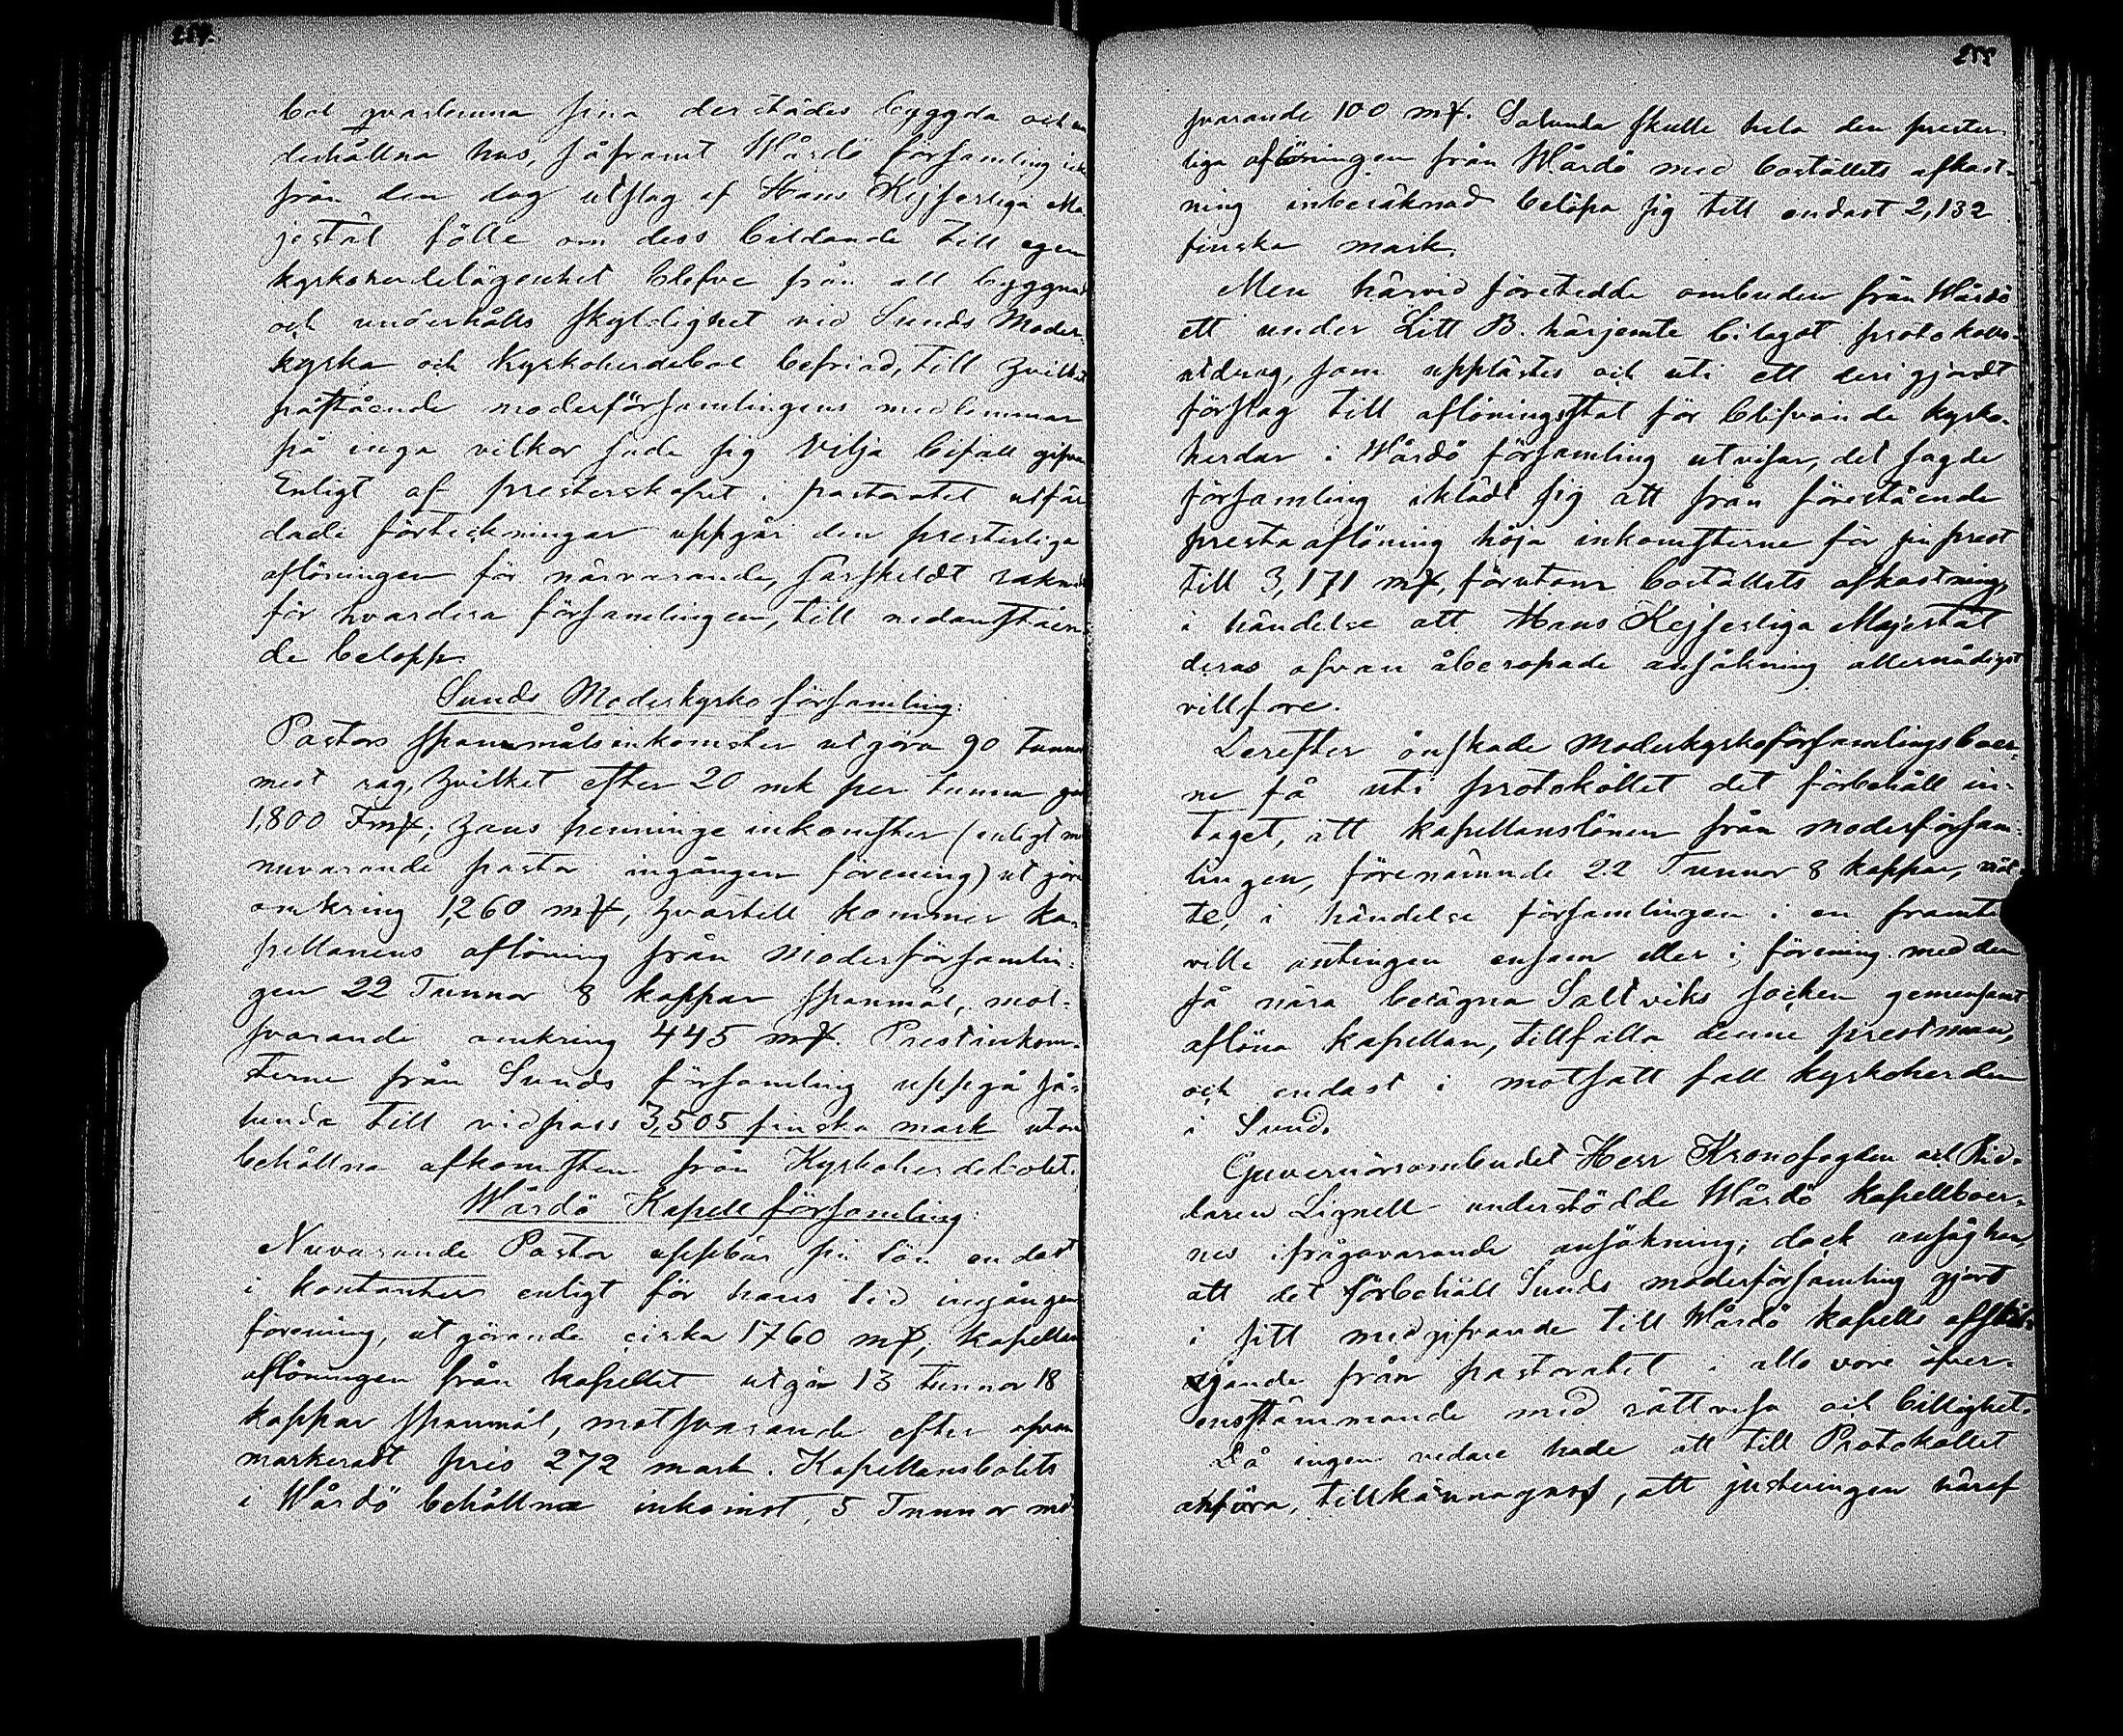 254.
bol qvarlemna sina derstädes byggda och un
derhållna hus, såframt Wårdö församling icke
från den dag utslag af Hans Kejserliga Ma
jestät fölle om dess bildande till egen
kyrkoherdelägenhet blefve från all byggnad
och underhålls skyldighet vid Sunds Moder
kyrka och kyrkoherdebol befriad, till hvilket
påstående moderförsamlingens medlemmar
på inga vilkor sade sig vilja bifall gifva
Enligt af presterskapet i pastoratet utfär
dade förteckningar uppgår den presterliga
aflöningen för närvarande, särskildt räknad
för hvardera församlingen, till nedanståen
de belopp.
Sunds Moderkyrko församling:
Pastors spannmålsinkomster utgöra 90 tunnor
mest råg, hvilket efter 20 mk per tunna gör
1,800 Fmk; hans penninge inkomster (enligt med
nuvarande pastor ingången förening) utgöra
omkring 1,260 mk, hvartill kommer ka-
pellanens aflöning från Moderförsamlin-
gen 22 Tunnor 8 kappar spanmål, mot-
svarande omkring 445 mk. Prestinkoms-
terne från Sunds församling uppgå så-
lunda till vidpass 3,505 finska mark utom
behållna afkomsten från Kyrkoherdebolet.
Wårdö Kapell församling:
Nuvarande Pastor uppbär sin lön endast
i kontanter enligt för hans tid ingången
förening, utgörande cirka 1760 mk; kapellans
aflöningen från kapellet utgör 13 tunnor 18
kappar spanmål, motsvarande efter ofvan
markeradt pris 272 mark. Kapellansbolets
i Wårdö behållna inkomst, 5 Tunnor mot
255
svarande 100 mk. Salunda skulle hela den prester-
liga aflöningen från Wårdö med boställets afkast-
ning inberäknad belöpa sig till endast 2,132
finska mark.
Men härvid företedde ombuden från Wårdö
ett under Litt B. härjemte bilagdt protokolls-
utdrag, som upplästes och uti ett deri gjordt
förslag till aflöningsstat för blifvande kyrko-
herdar i Wårdö församling utvisar, det sagde
församling iklädt sig att från förestående
presta aflöning höja inkomsterne för sin prest
till 3,171 mk, förutom boställets afkastning,
i händelse att Hans Kejserliga Majestät
deras ofvan åberopade ansökning allernådigst
villfore.
Derefter önskade Moderkyrkoförsamlingsboer-
ne få uti protokollet det förbehåll in-
taget, att kapellanslönen från moderförsam-
lingen, förenämnde 22 Tunnor 8 kappar, mål-
te, i händelse församlingen i en framtid
ville antingen ensam eller i förening med den
så nära belägna Saltviks socken gemensamt
aflöna kapellan, tillfalla denne prestman,
och endast i motsatt fall kyrkoherden
i Sund.
Guvernörsombudet Herr Kronofogden och Rid-
daren Lignell understödde Wårdö kapellboer-
nes ifrågavarande ansökning; dock ansåg han,
att det förbehåll Sunds moderförsamling gjort
i sitt medgifvande till Wårdö kapells afskil-
jande från pastoratet i allo vore öfver-
ensstämmande med rättvisa och billighet.
Då ingen vidare hade att till Protokollet
anföra, tillkännagafs, att justeringen häraf